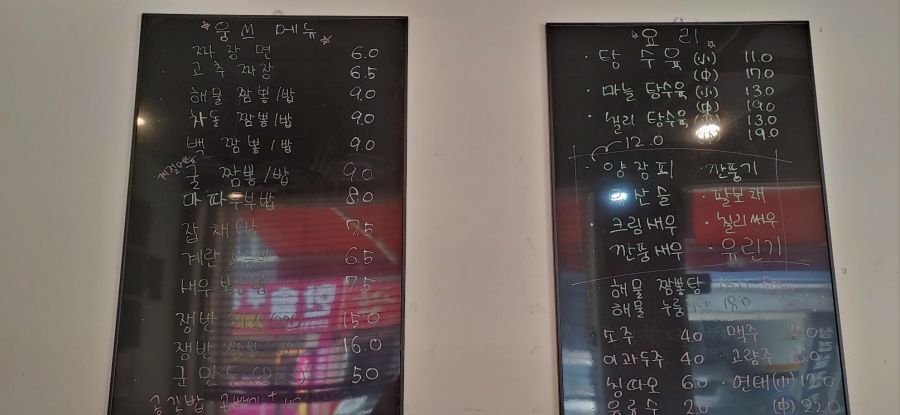 웅쓰 메뉴
짜장면 6.0
고추 짜장 6.5
해물 짬뽕/밥 9.0
차돌 짬뽕/밥 9.0
백 짬뽕/밥 9.0
굴 짬뽕/밥 9.0
마파두부밥 8.0
잡채밥 7.5
계란 6.5
새우 볶음밥 7.5
쟁반 15.0
쟁반 16.0
군만두 5.0
공기밥 곱빼기 +
요리
탕수육 (小) 11.0
(中) 17.0
마늘 탕수육 (小) 13.0
(中) 19.0
칠리 탕수육 (小) 13.0
19.0
12.0
양장피 · 깐풍기
유산슬 · 팔보채
· 크림새우 · 칠리새우
깐풍새우 · 유린기
해물 짬뽕탕
해물 누룽 18.0
소주 4.0 맥주
이과두주 4.0 고량주 5.0
칭따오 6.0 · 연태(小) 12.0
음료수 2.0 (中) 22.0